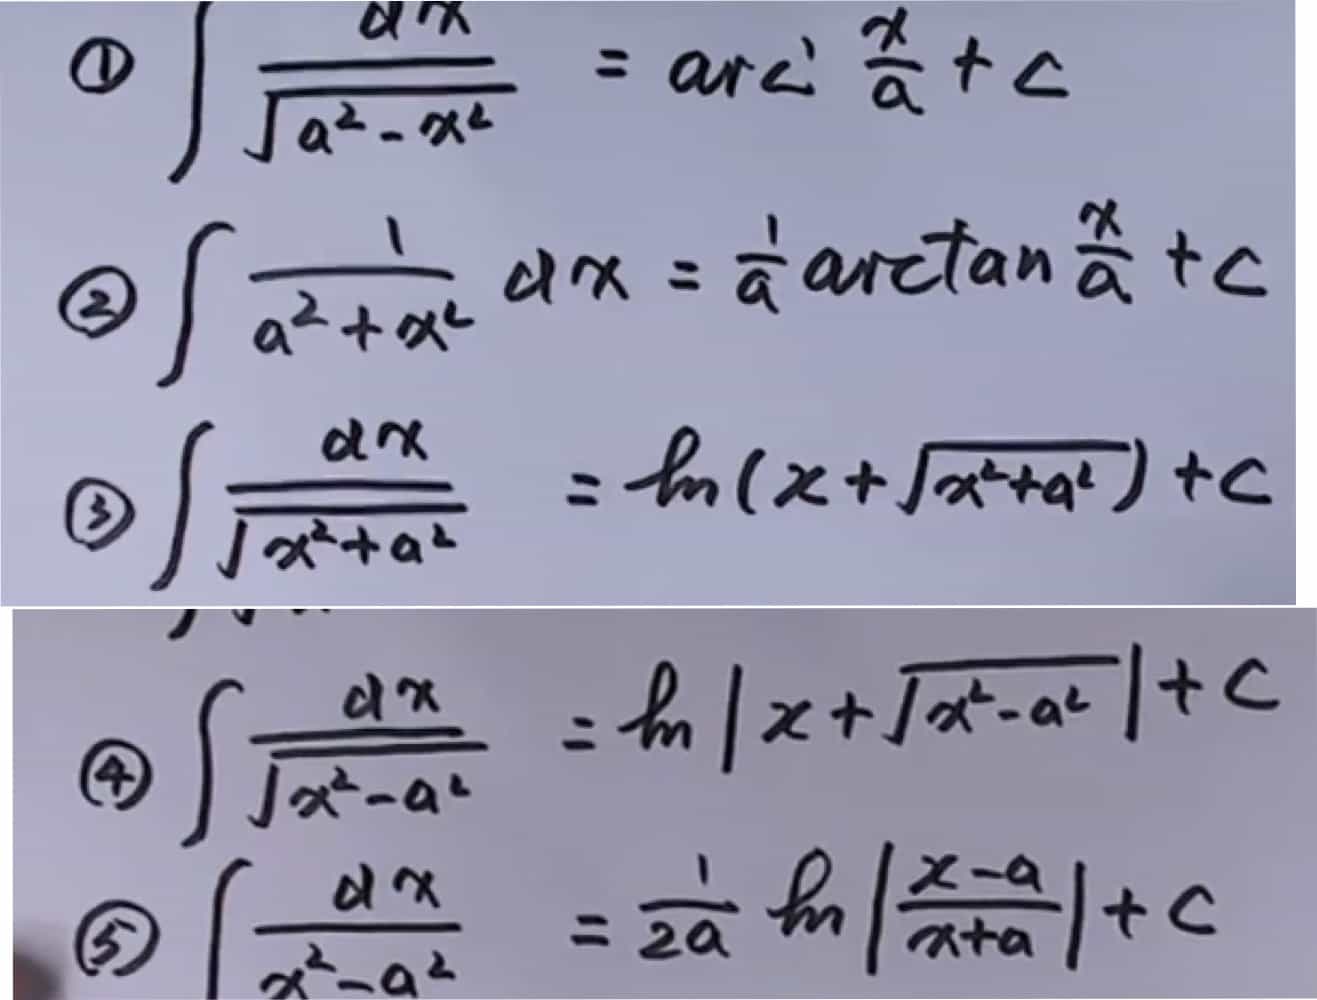 ① ∫ dx / √(a² - x²) = arc' x/a + C
② ∫ 1 / (a² + x²) dx = 1/a arctan x/a + C
③ ∫ dx / √(x² + a²) = ln(x + √(x² + a²)) + C
④ ∫ dx / √(x² - a²) = ln|x + √(x² - a²)| + C
⑤ ∫ dx / (x² - a²) = 1/2a ln|(x - a)/(x + a)| + C